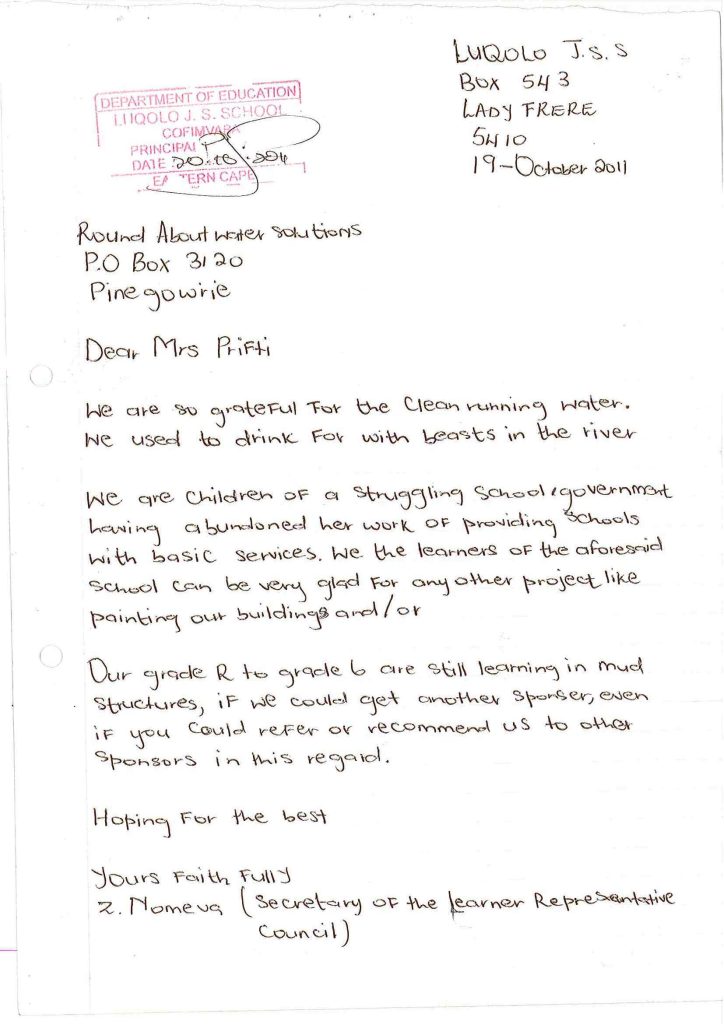 LUQOLO J.S.S
BOX 543
LADY FRERE
5410
19-October 2011
DEPARTMENT OF EDUCATION
LUQOLO J. S. SCHOOL
COFIMVABA
PRINCIPAL
DATE 20.10.2011
EASTERN CAPE
Round About water solutions
P.O Box 3120
Pinegowrie
Dear Mrs Prifti
We are so grateful for the clean running water.
We used to drink for with beasts in the river
We are children of a struggling school, government
having abundoned her work of providing schools
with basic services. We the learners of the aforesaid
school can be very glad for any other project like
painting our buildings and/or
Our grade R to grade 6 are still learning in mud
structures, if we could get another sponser, even
if you could refer or recommend us to other
sponsors in this regard.
Hoping for the best
Yours Faith Fully
Z. Nomeva (Secretary of the learner Representative
Council)